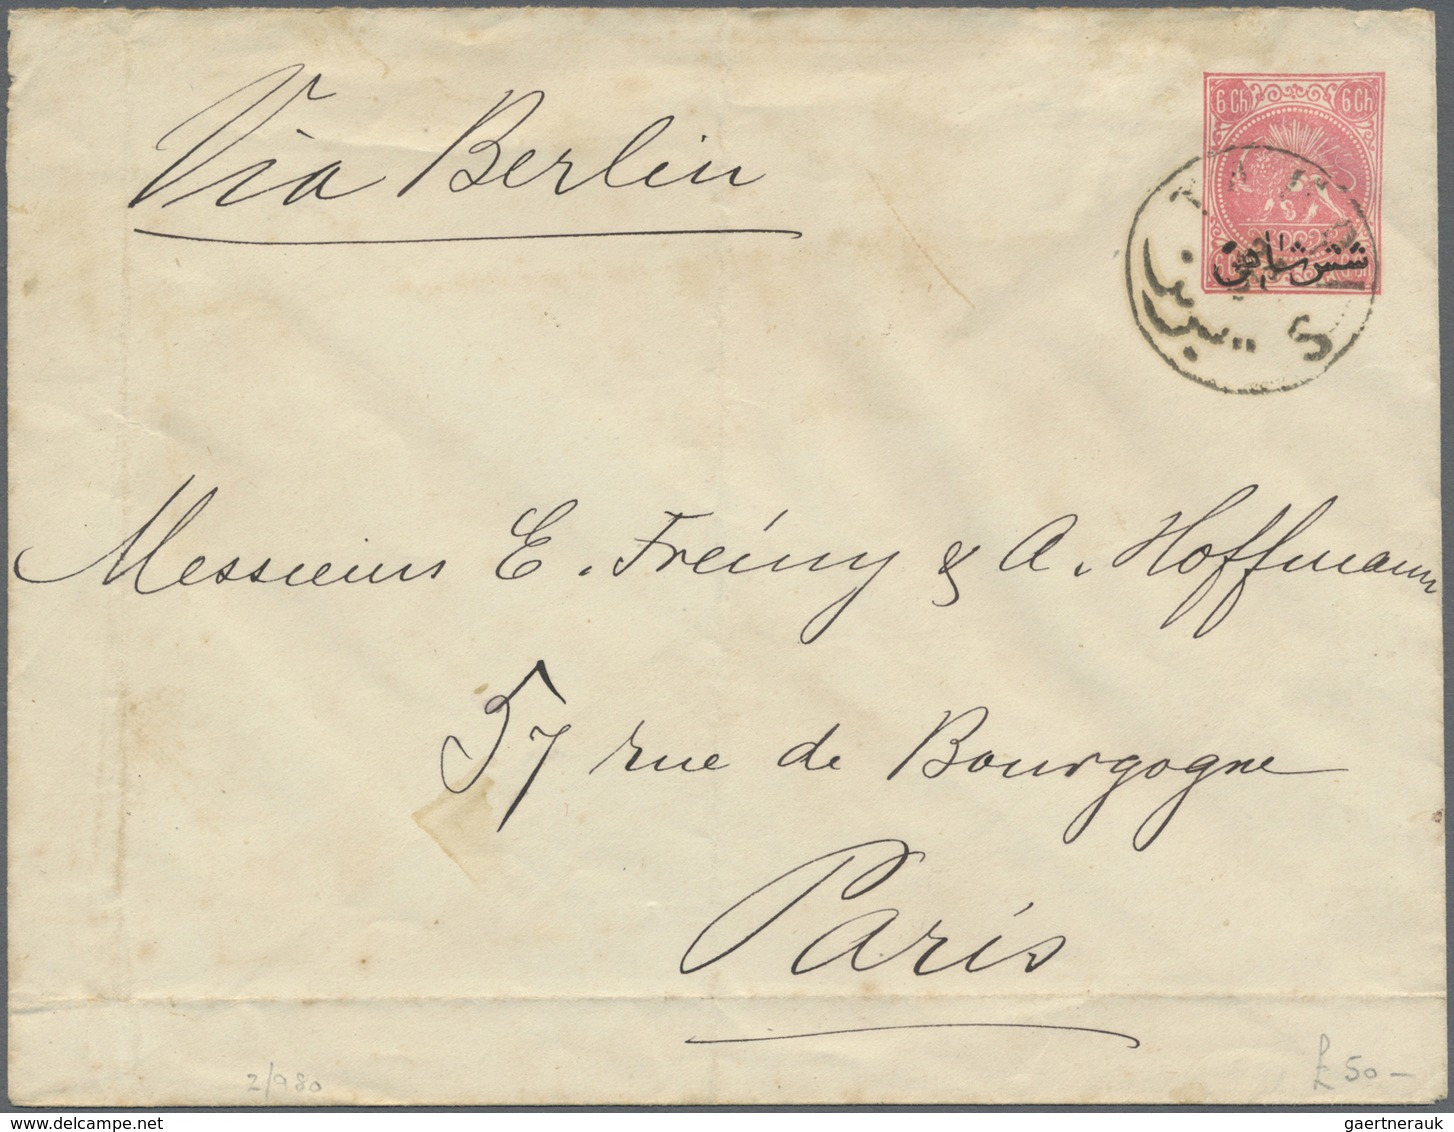 Via Berlin
6 Ch 6 Ch
شش شاهی
تبریز
Messieurs E. Frémy & A. Hoffmann
57 rue de Bourgogne
Paris
2/980
£ 50 -
gaertnerauk | www.delcampe.net